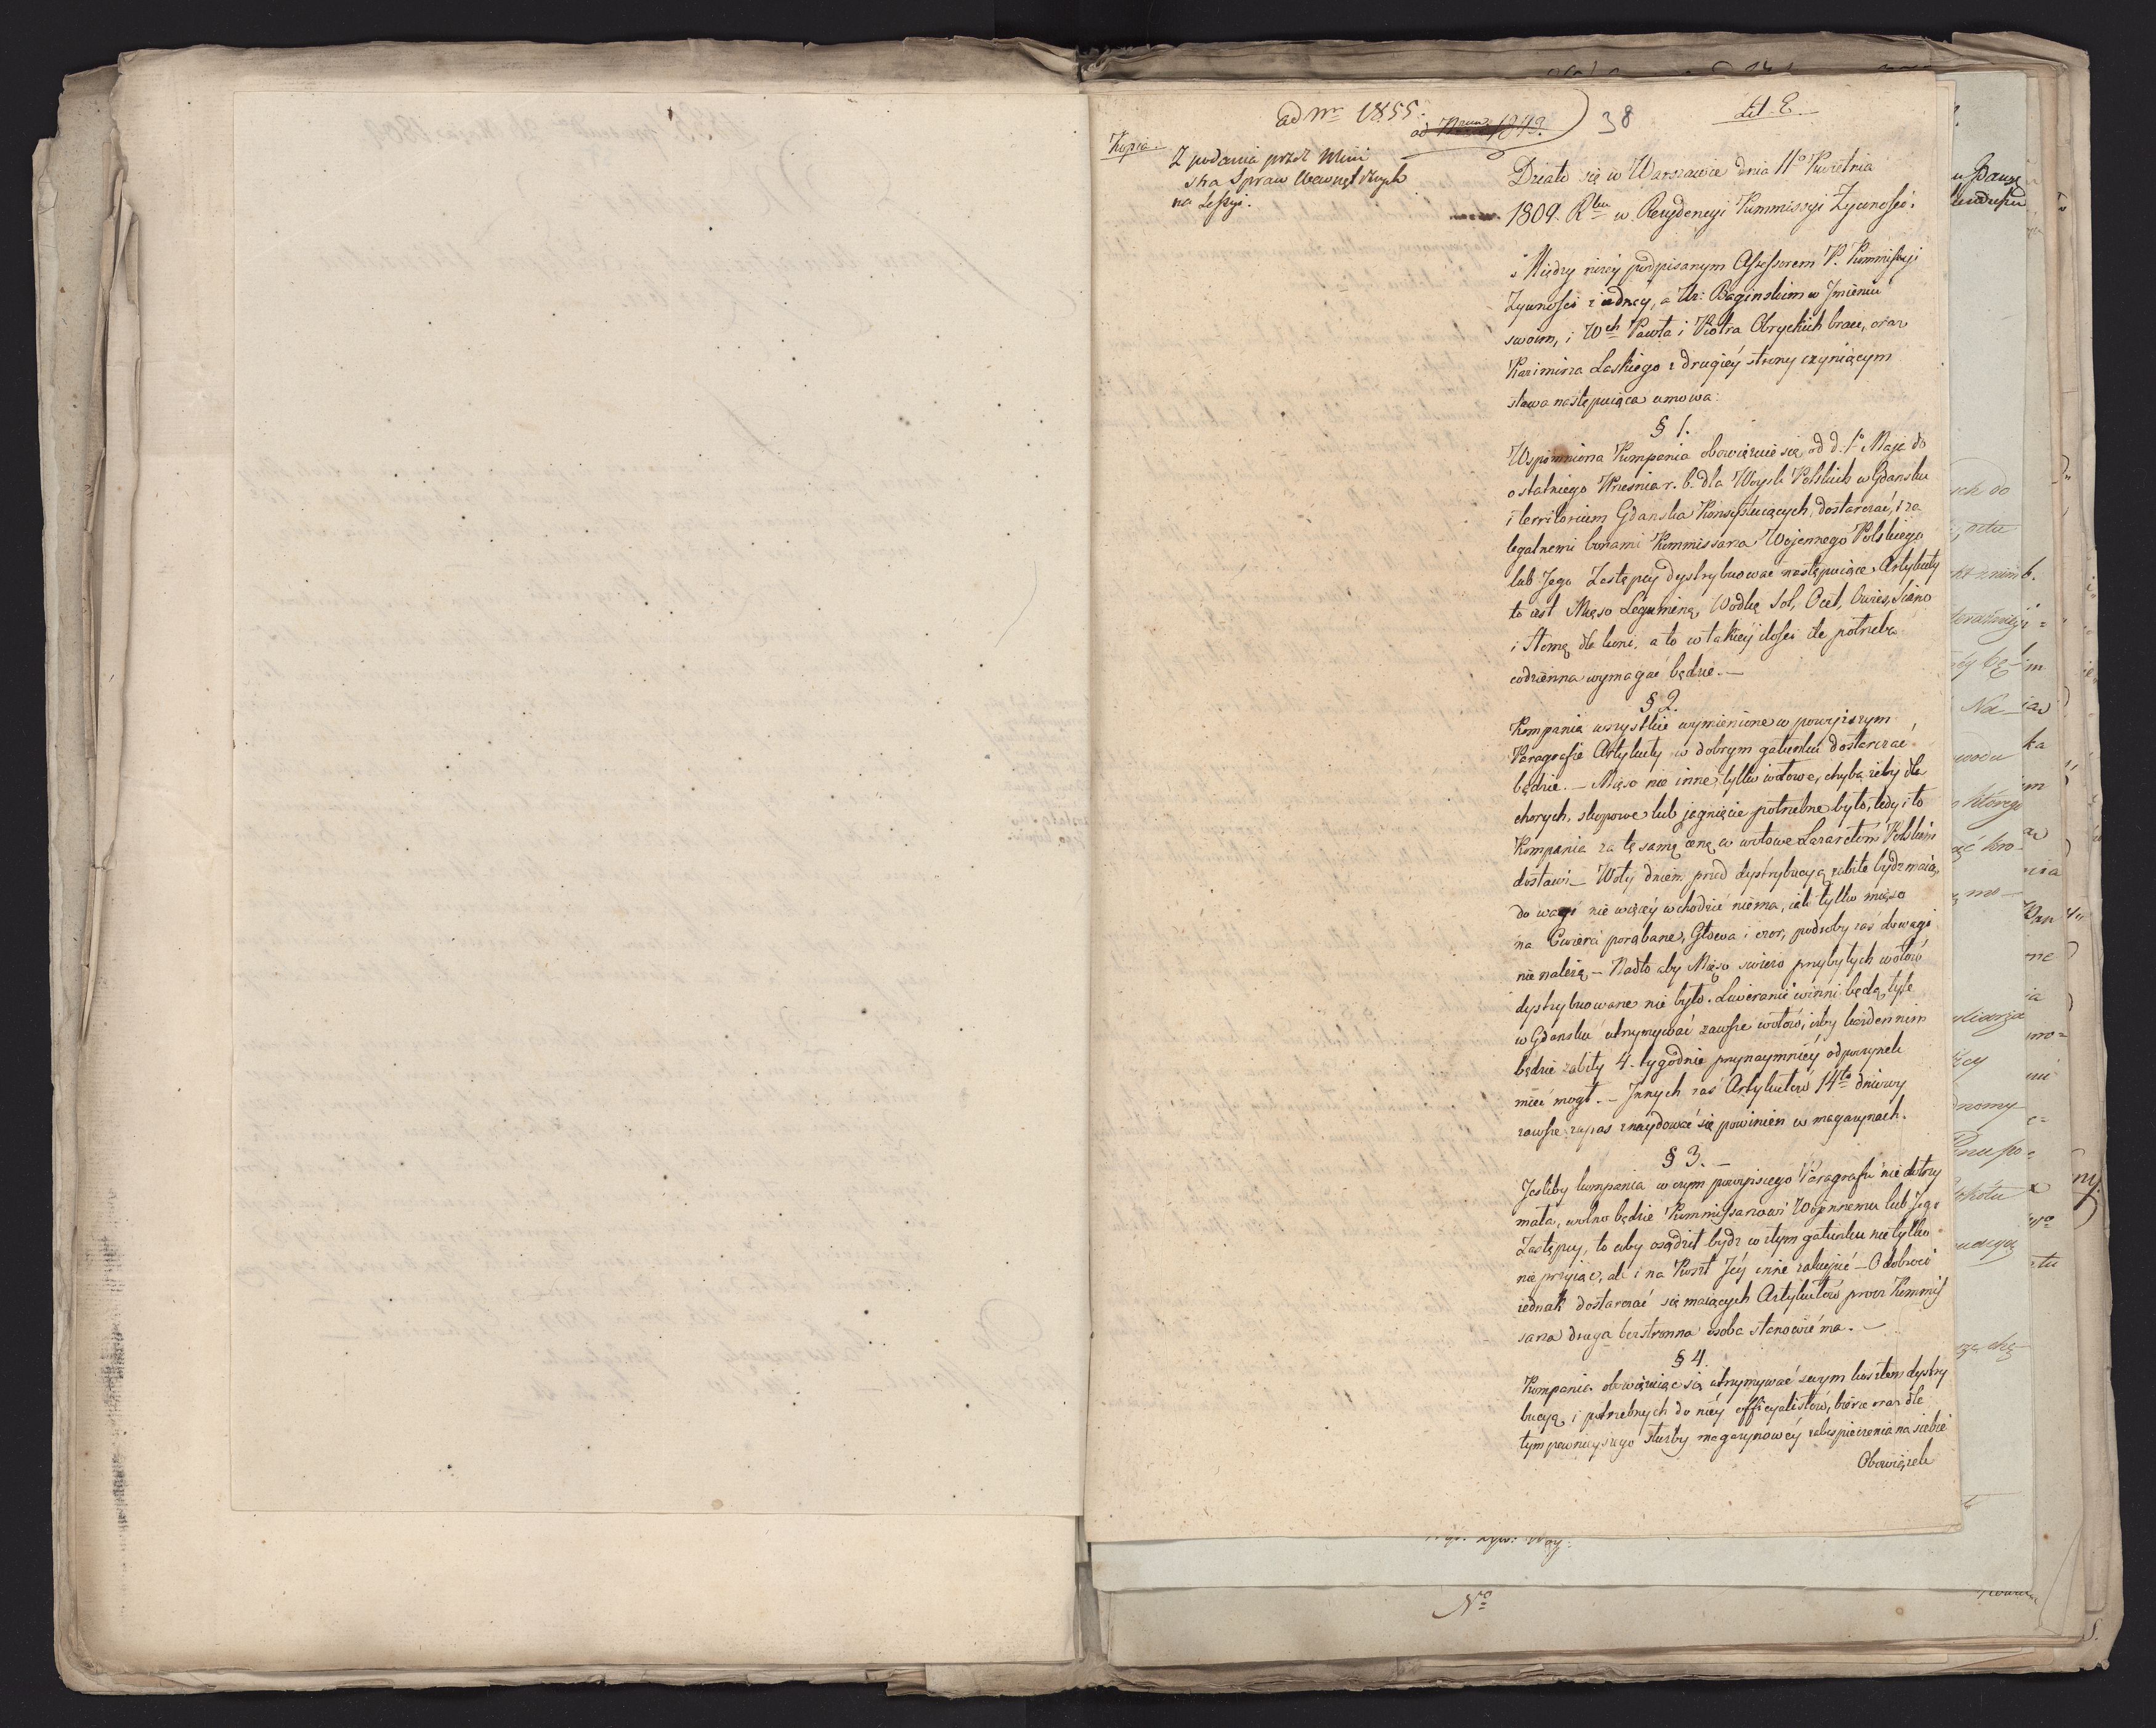 ad Nr 1855.
ad Num 1843.
38
Lit. E.
Kopia.
Z podania przez Mini
stra Spraw Wewnętrznych
na Sessyi.
Działo się w Warszawie dnia 11o Kwietnia
1809. Rku w Rezydencyi Kommissyi Zywności.
Między niżey podpisanym Assessorem P. Kommissyi
Zywności z iedney, a Ur: Baginskim w Imieniu
swoim, i Wch Pawła i Piotra Obryckich braci, oraz
Kazimirza Laskiego z drugiéy strony czyniącym
stawa następuiąca umowa:
§ 1.
Wspomniona Kompania obowiązuie się, od d. 1o Maja do
ostatniego Września r. b. dla Woysk Polskich w Gdansku
i territorium Gdanska Konsystuiących, dostarczać, i za
legalnemi bonami Kommissarza Wojennego Polskiego
lub Jego Zastępcy dystrybuować następuiące Artykuły
to iest Mięso Leguminę, Wodkę Sol, Ocet, Owies, Siano
i Słomę dla koni, a to w takiéy ilości ile potrzeba
codzienna wymagać będzie. —
§ 2.
Kompania wszystkie wymienione w powyższym
Paragrafie Artykuły w dobrym gatunku dostarczać
będzie. — Mięso nie inne, tylko wołowe, chyba żeby dla
chorych, skopowe lub jagnięcie potrzebne było, tedy i to
Kompania za tę samę cenę co wołowe Lazaretom Polskim
dostawi — Woły dniem przed dystrybucyą zabite bydz maią,
do wagi nie więcéy wchodzić niema, iak tylko mięso
na Cwierci porąbane, Głowa i ozor, podroby zaś do wagi
nie należą — Nadto aby Mięso swiezo przybyłych wołów
dystrybuowane nie było. Liweranci winni będą tyle
w Gdansku utrzymywać zawsze wołów, iżby każden nim
będzie zabity 4. tygodnie przynaymniéy odpoczynek
mieć mogł. — Innych zaś Artykułow 14to dniowy
zawsze zapas znaydować się powinien w magazynach.
§ 3. —
Jesliby kompania w czym powyższego Paragrafu nie dotrzy
mała, wolno będzie Kommissarzowi Wojennemu lub Jego
Zastępcy, to coby osądził bydz w złym gatunku nie tylko
nie przyiąć, ale i na Koszt Jéy inne zakupić — O dobroci
iednak dostarczać się maiących Artykułow prócz Kommis
sarza druga bezstronna osoba stanowić ma. —
§ 4.
Kompania obowiązuiąc się utrzymywać swym kosztem dystry
bucyą, i potrzebnych do niéy officyalistów, bierze oraz dla
tym pewnieyszego służby magazynowéy zabespieczenia na siebie
Obowiązek
No